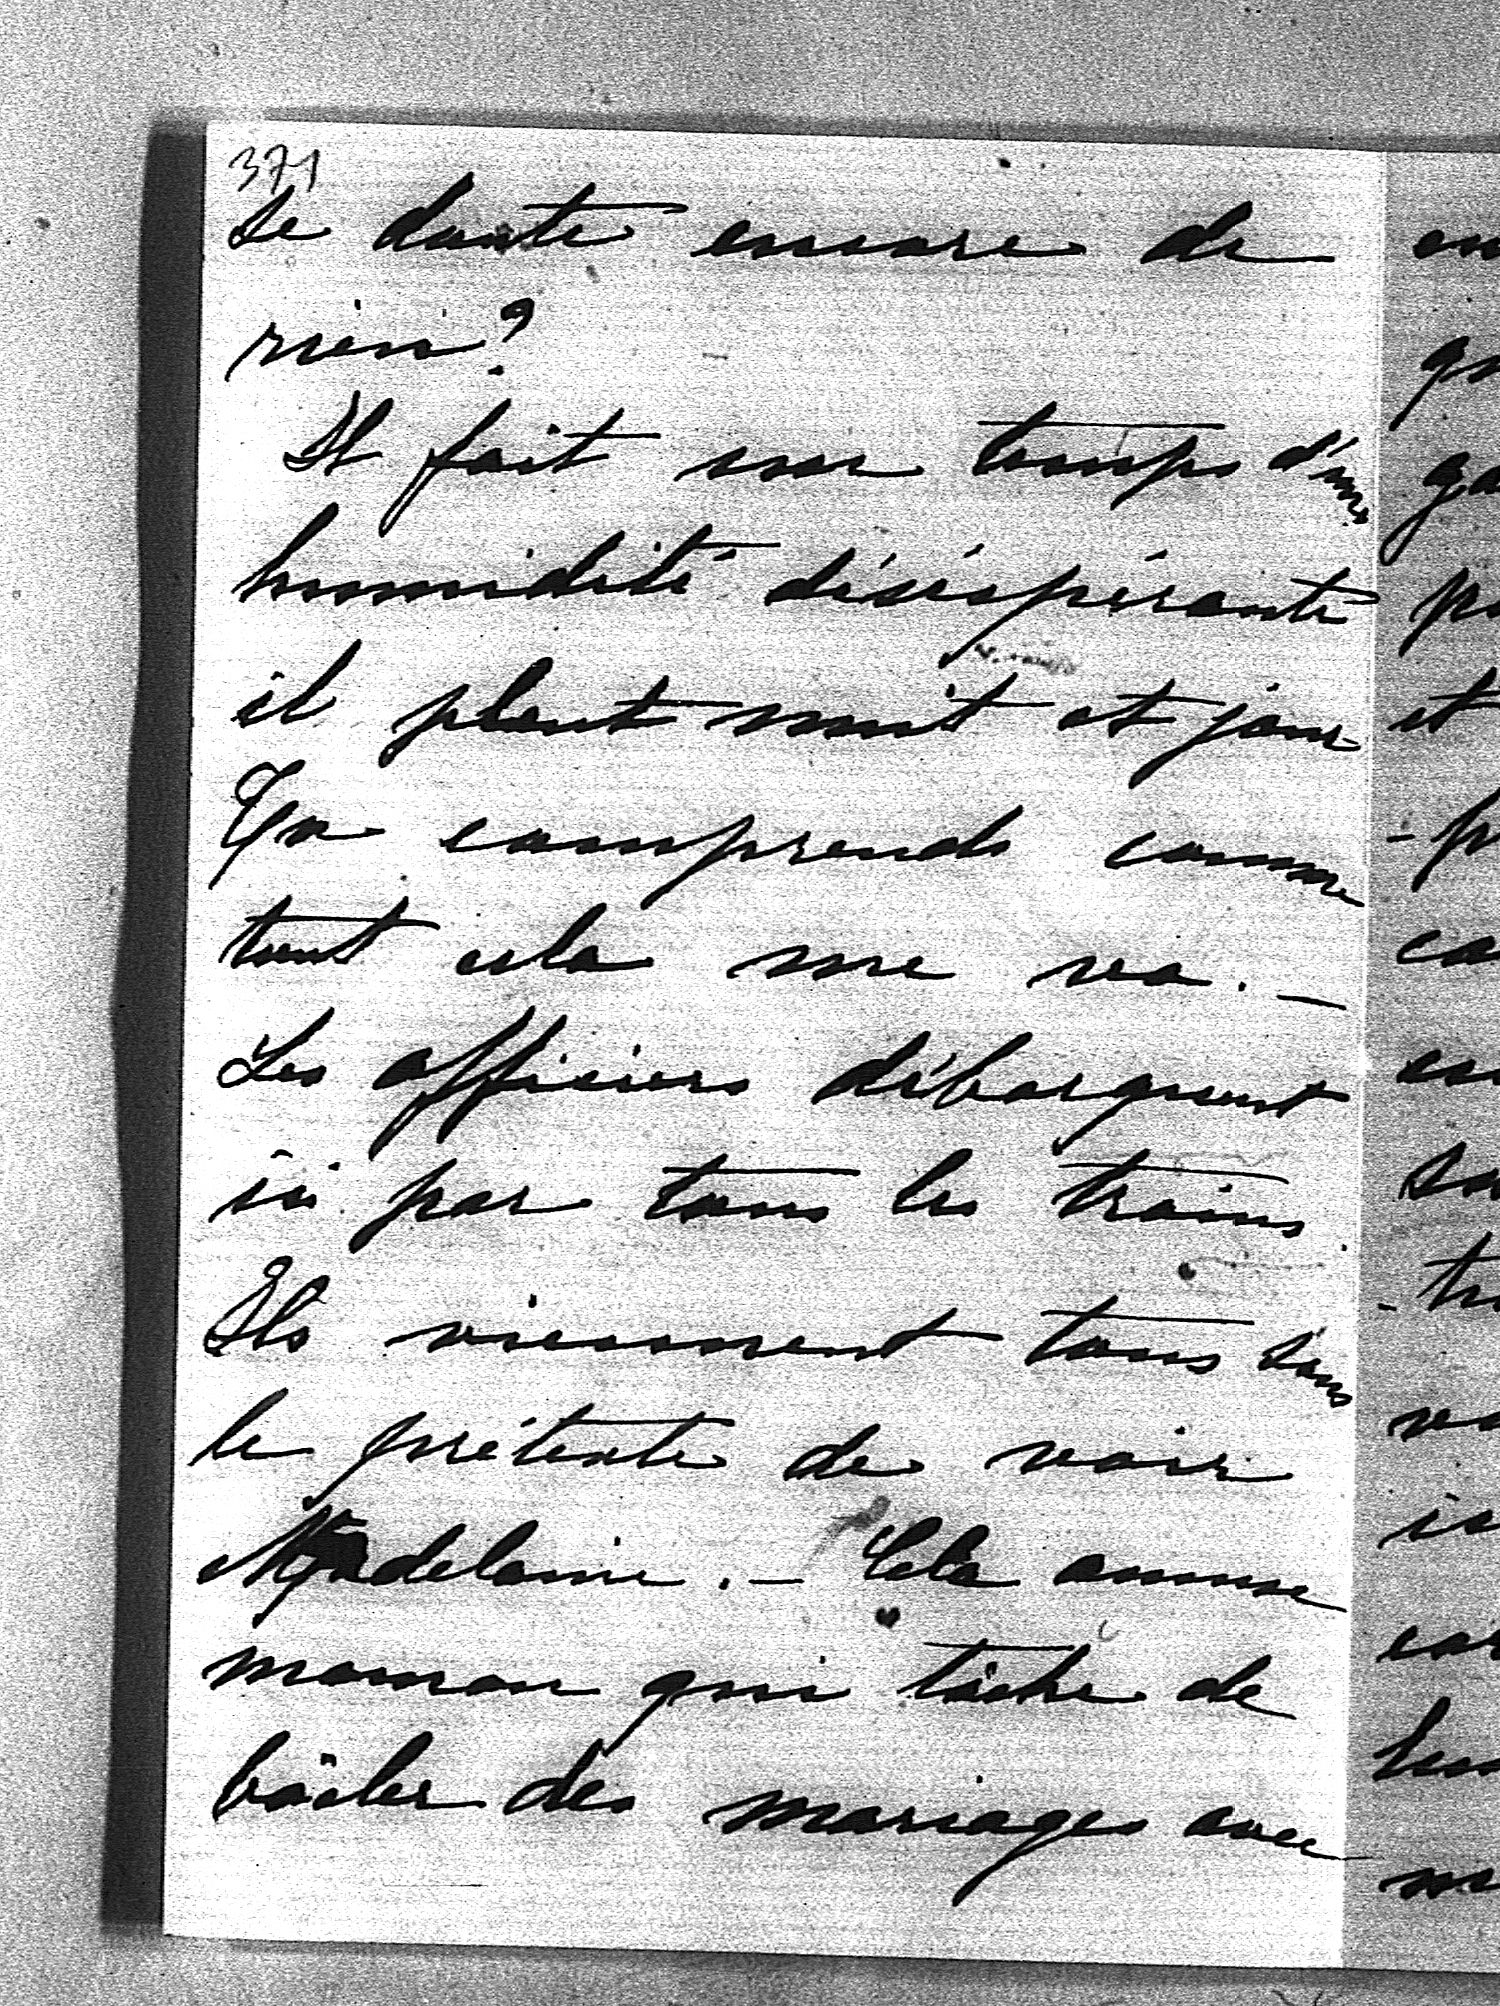 371
se doute encore de
rien?
Il fait un temps d'une
humidité désespérante
il pleut nuit et jour
Tu comprends comme
tout cela me va. —
Les officiers débarquent
ici par tous les trains.
Ils viennent tous sous
le prétexte de voir
Madeleine. — Cela amuse
maman qui tâche de
bâcler des mariages avec